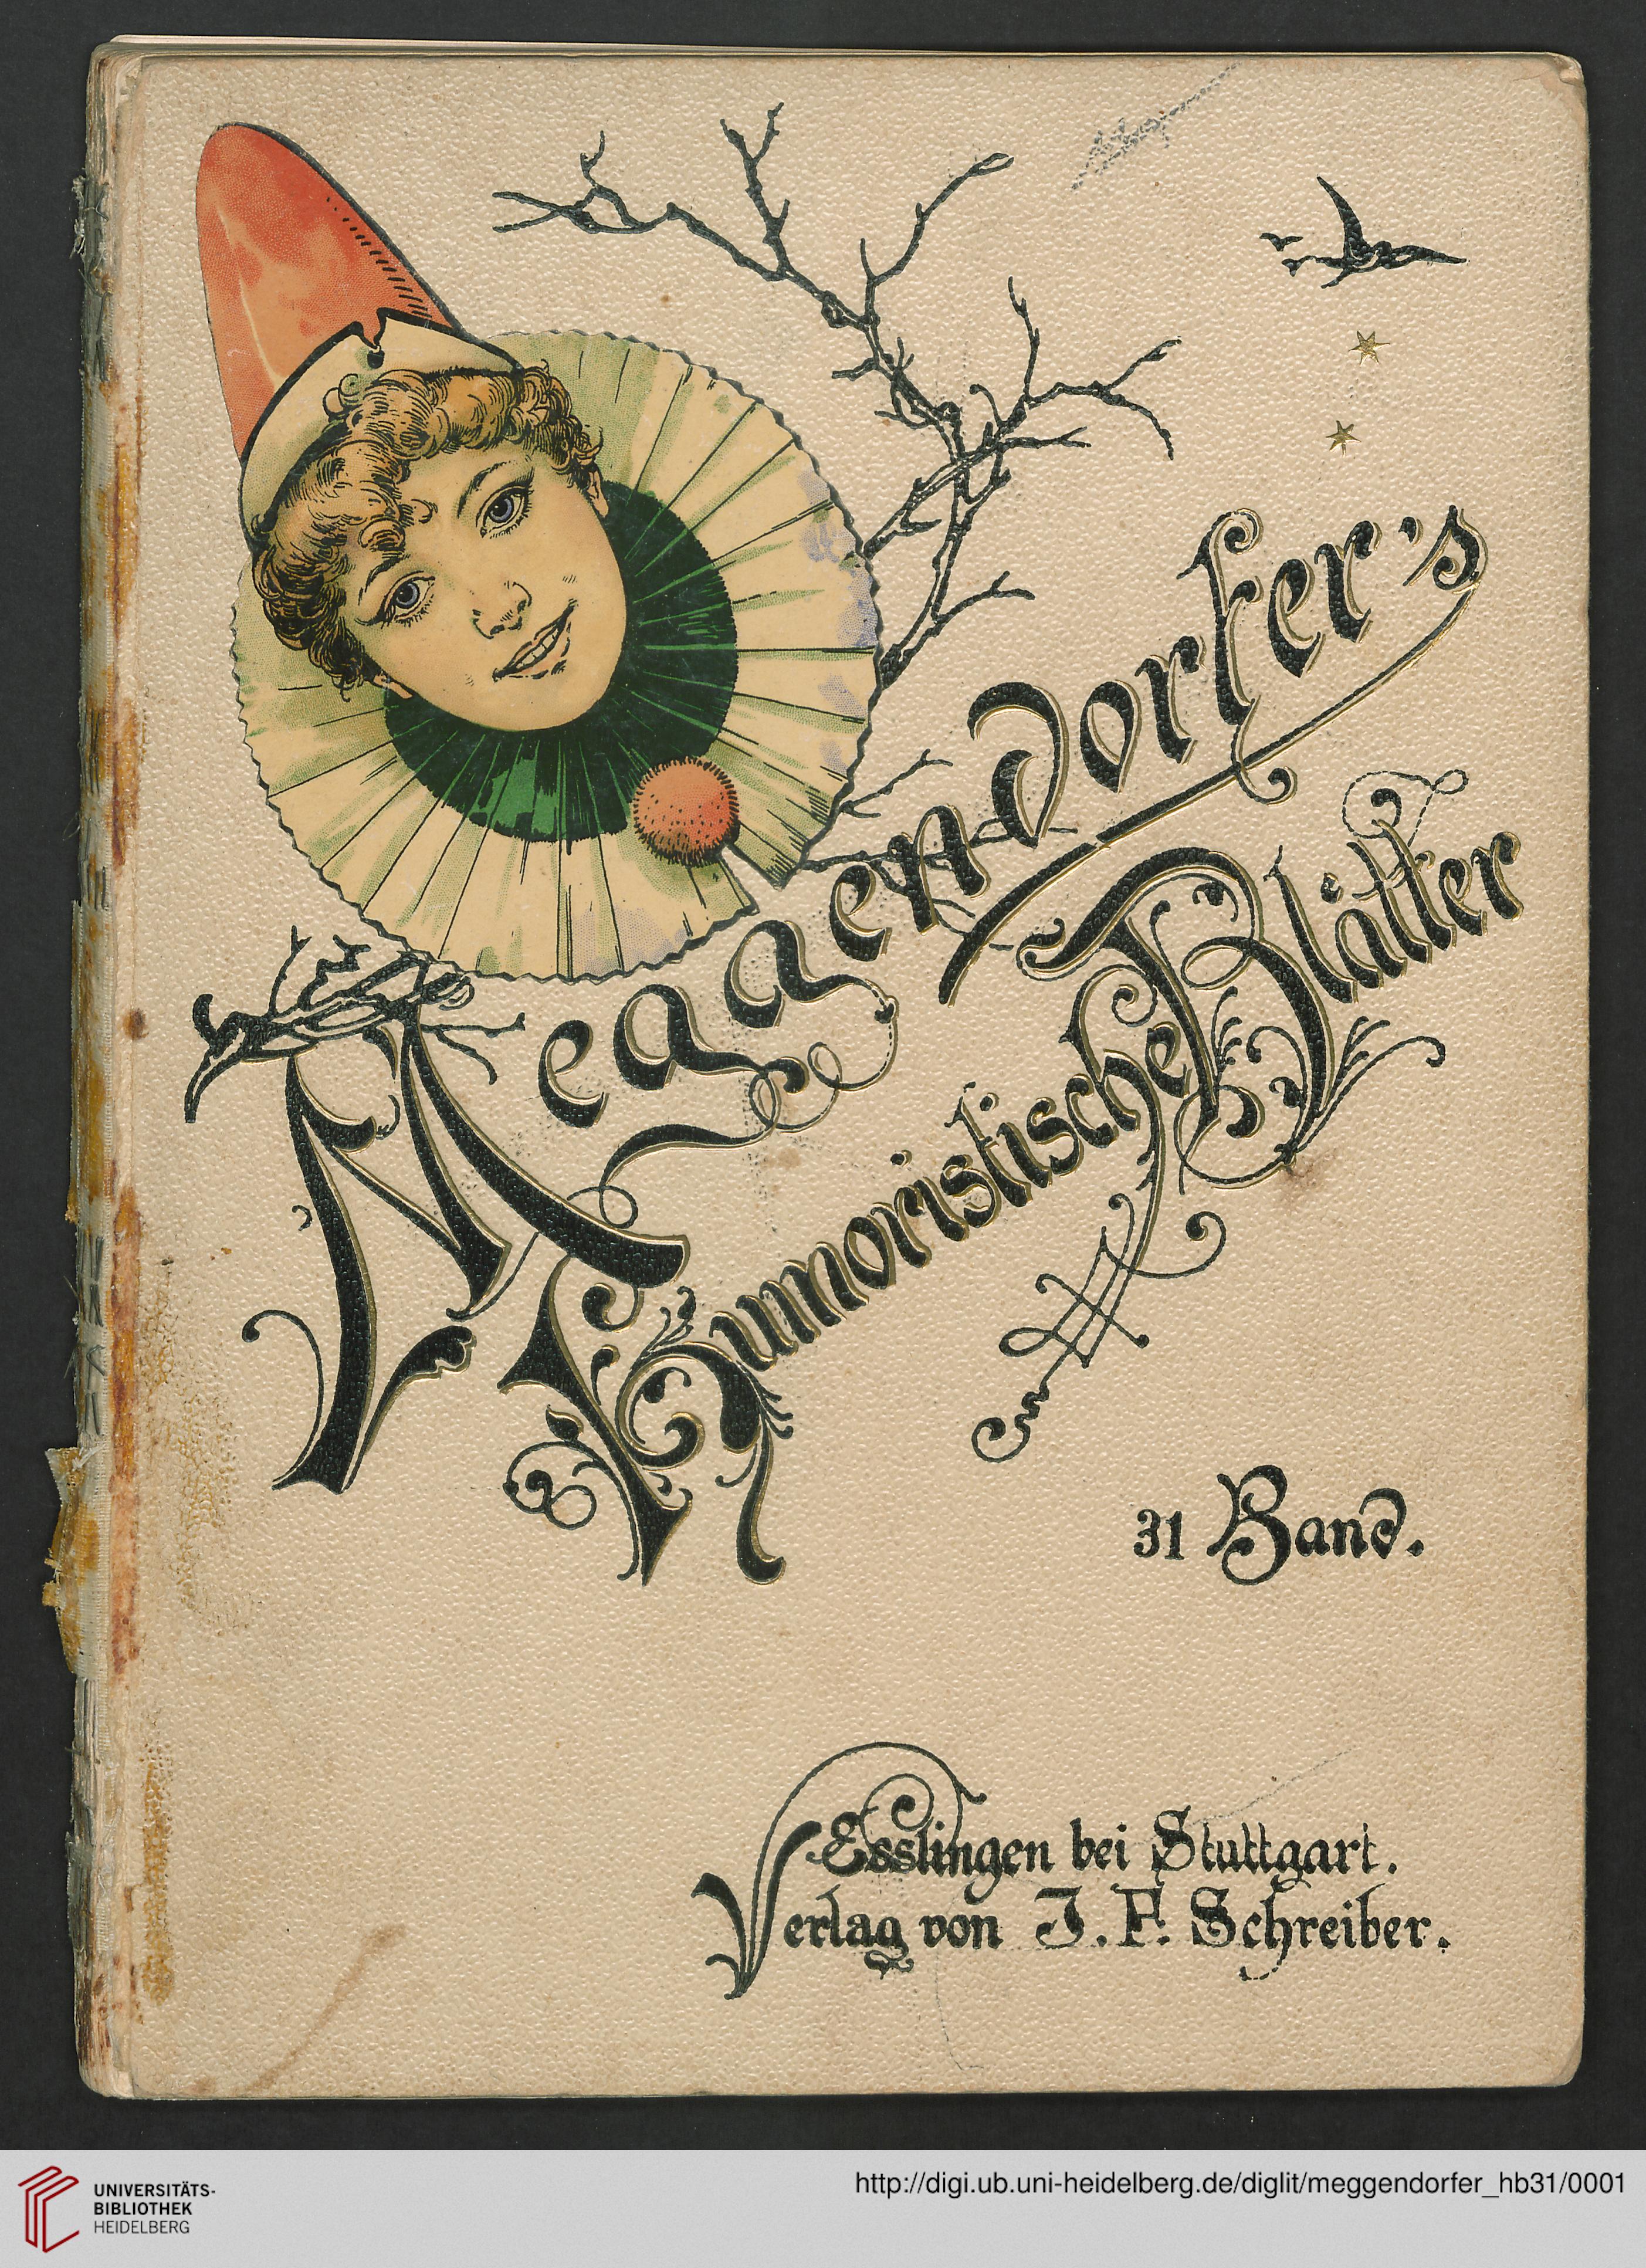 Meggendorfer's
Humoristische Blätter
31 Band.
Esslingen bei Stuttgart.
Verlag von J. F. Schreiber.
UNIVERSITÄTS-
BIBLIOTHEK
HEIDELBERG
http://digi.ub.uni-heidelberg.de/diglit/meggendorfer_hb31/0001